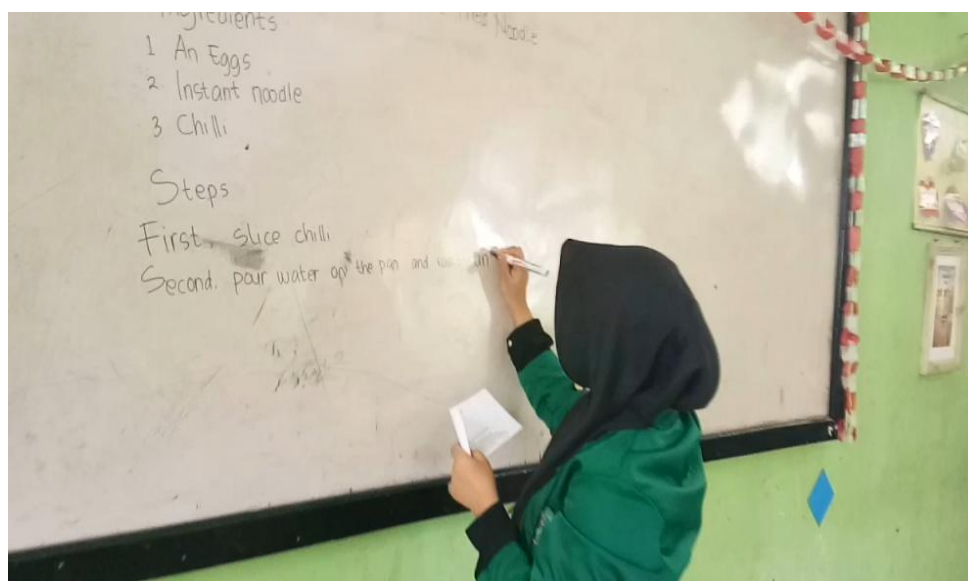 Ingredients
Noodle
1 An Eggs
2 Instant noodle
3 Chilli
Steps
First, slice chilli
Second. pour water on the pan and